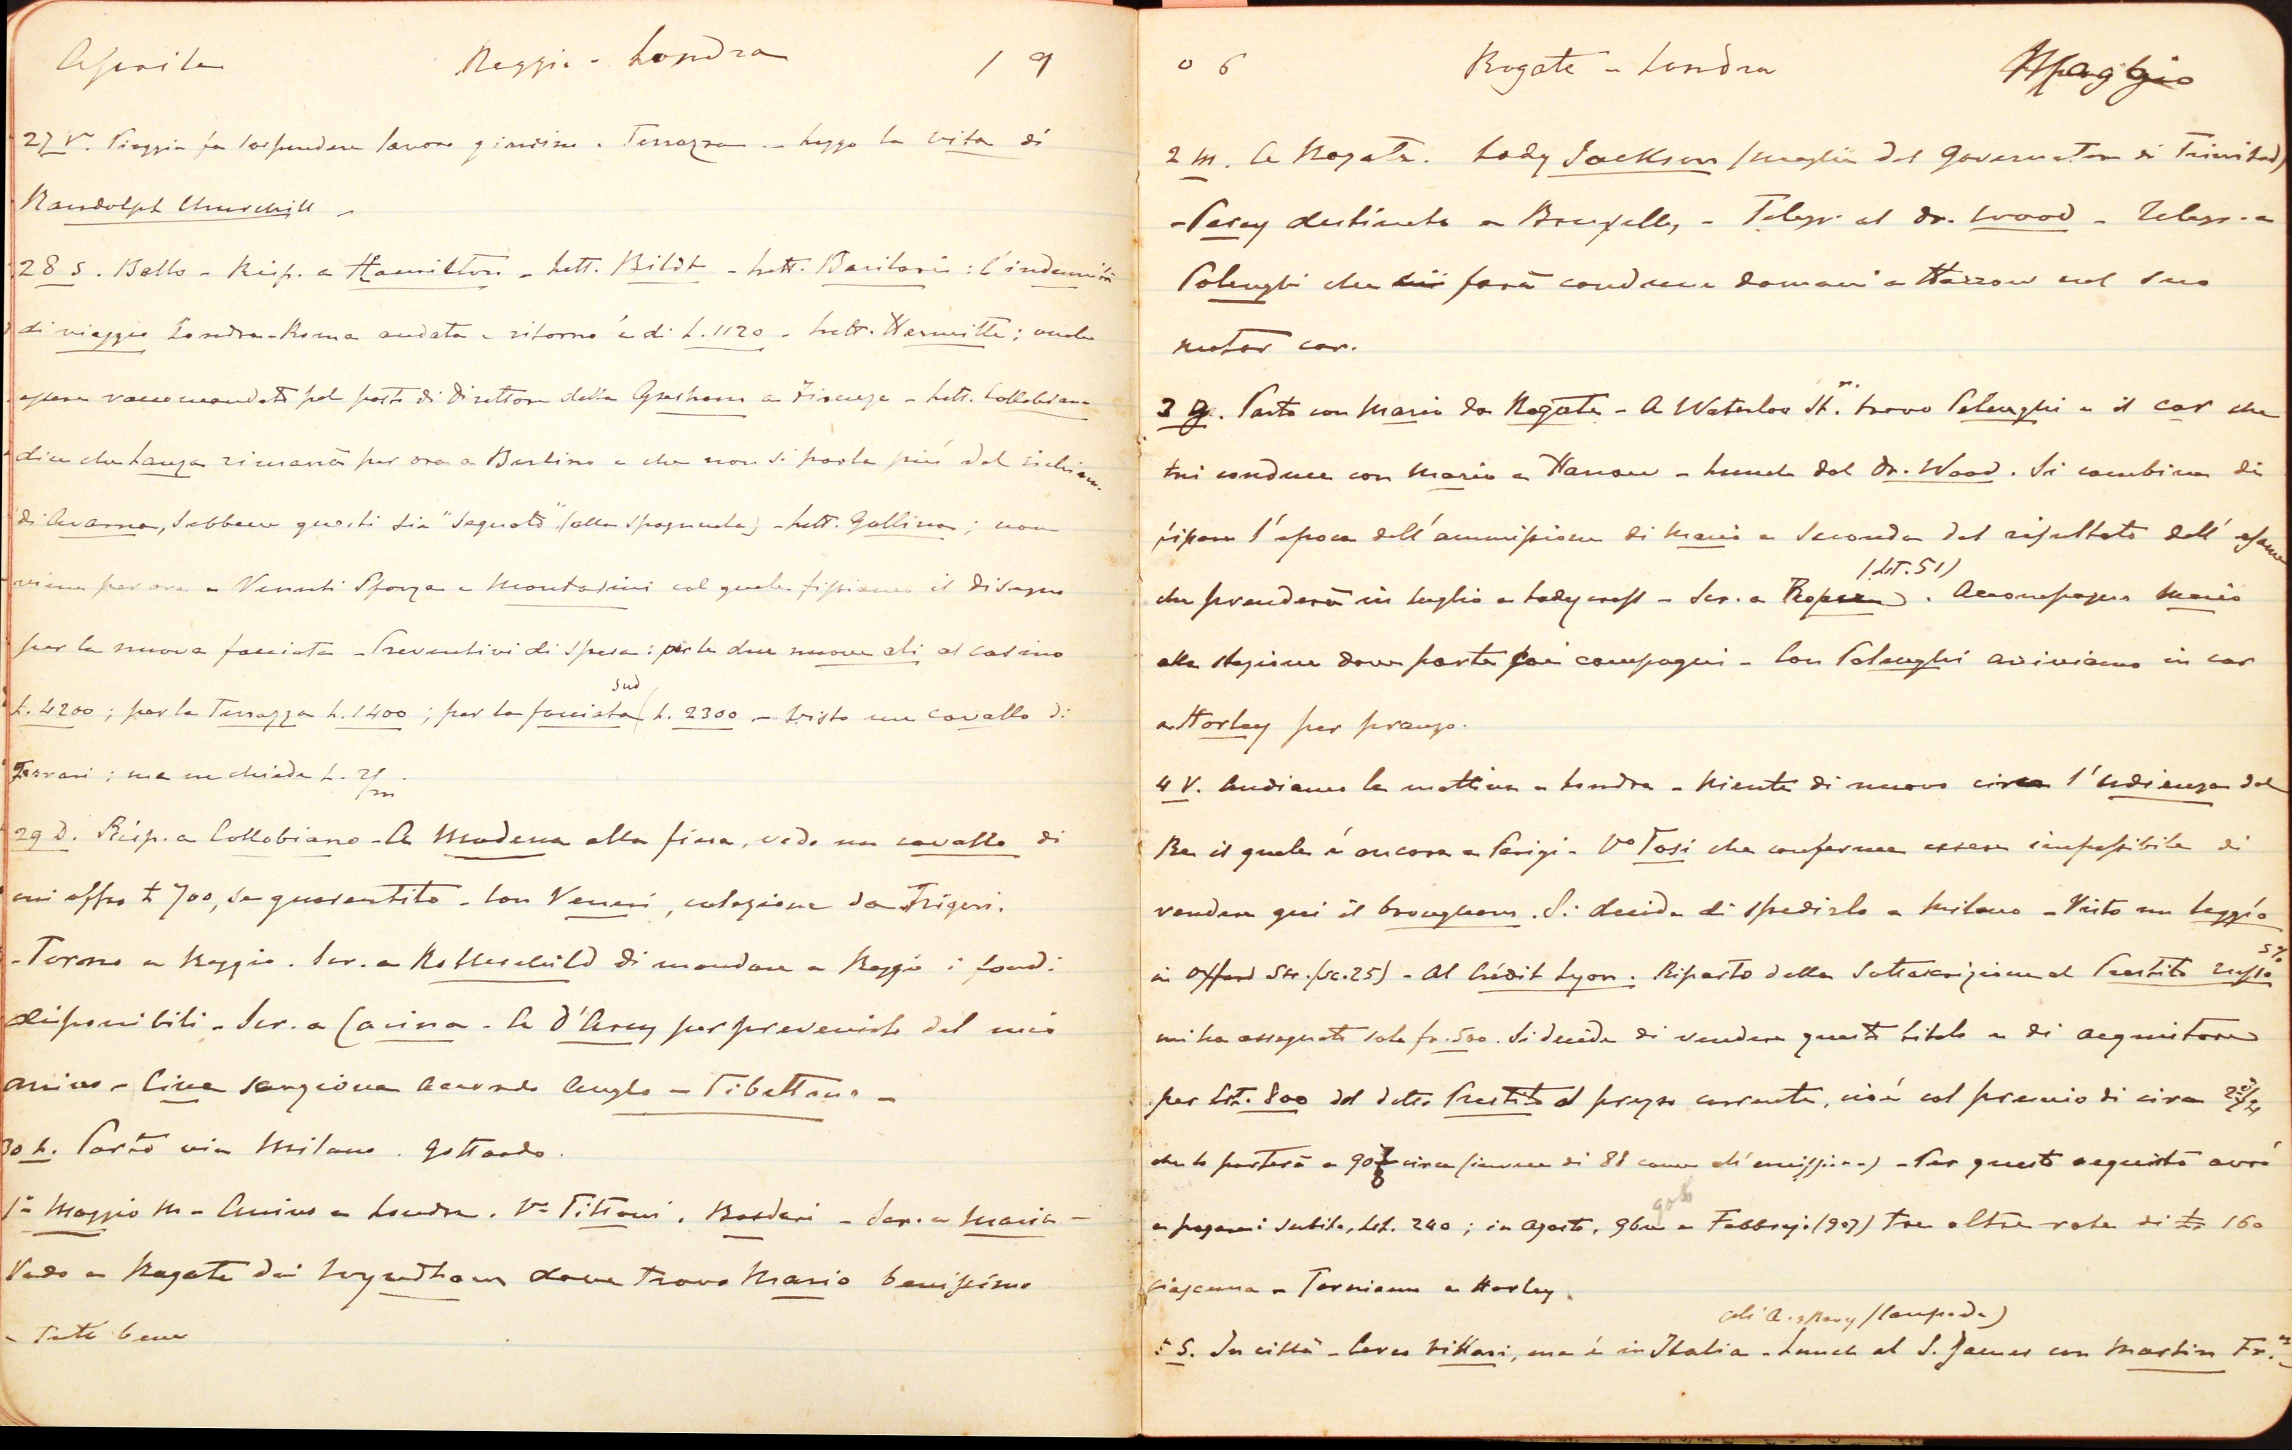 Aprile Reggio - Londra 19
27 V. Pioggia fa sospendere lavoro giardino e Terrazza - Leggo la vita di
Randolph Churchill -
28 S. Bello - Risp. a Hamilton - Lett. Bildt - Lett. Barilari: l'indennità
di viaggio Londra-Roma andata e ritorno è di L. 1120 - Lett. Hermitte; vuole
essere raccomandato pel posto di Direttore della Gresham a Firenze - Lett. Collobiano
dice che Lanza rimarrà per ora a Berlino e che non si parla più del richiam.
di Avarna, sebbene questi sia "segnato" (alla spagnuola) - Lett. Gallina; non
viene per ora - Venuti Sforza e Montadini col quale fissiamo il disegno
per la nuova facciata - Preventivi di spesa: per le due nuove ali al casino
L. 4200; per la Terrazza L. 1400; per la facciata sud L. 2300 - Visto un cavallo di
Ferrari; ma ne chiede L. 2/m.
29 D. Risp. a Collobiano - A Modena alla fiera, vedo un cavallo di
mi offro L 700, se guarentito - Con Veneri, colazione da Frigeri.
- Torno a Reggio. Scr. a Rothschild di mandare a Reggio i fondi
disponibili - Scr. a Carina - A d'Arcy per prevenirlo del mio
arrivo - Cina sanziona accordo Anglo-Tibettano -
30 L. Parto via Milano. Gottardo.
1° Maggio M - Arrivo a Londra. V° Tittoni, Bordari - Scr. a Maria -
Vado a Rogate dai Wyndham dove trovo Mario benissimo
- Tutti bene
06 Rogate - Londra Maggio
2 M. A Rogate. Lady Jackson (moglie del Governatore di Trinidad)
- Percy destinato a Bruxelles - Telegr. al dr. Wood - Telegr. a
Polenghi che mi farà condurre domani a Harrow nel suo
motor car.
3 G. Parto con Mario da Rogate - A Waterloo St.n trovo Polenghi e il car che
mi conduce con Mario a Harrow - Lunch dal Dr. Wood. Si combina di
fissare l'epoca dell'ammissione di Mario a seconda del risultato dell'esame
che prenderà in luglio a Ladycross - Scr. a Roper (Lst. 51). Accompagno Mario
alla stazione dove parte coi compagni - Con Polenghi arriviamo in car
a Horley per pranzo.
4 V. Andiamo la mattina a Londra - Niente di nuovo circa l'udienza del
Re il quale è ancora a Parigi - V° Tosi che conferma essere impossibile di
vendere qui il brougham. Si decide di spedirlo a Milano - Visto un leggio
in Oxford Str. (sc. 25) - Al Crédit Lyon. Riparto della sottoscrizione al Prestito russo 5%
mi ha assegnato solo fr. 500. Si decide di vendere questo titolo e di acquistare
per Lst. 800 del detto Prestito al prezzo corrente, cioè col premio di circa 2 3/4
che lo porterà a 90 7/8 circa (invece di 88 come all'emissione) - Per questo acquisto avrò
a pagare subito, Lst. 240; in agosto, 9bre e Febbraio (907) tre altre rate di Ls 160
ciascuna - Torniamo a Horley.
5 S. In città - Cerco Villari, ma è in Italia - Lunch al S. James con Martin Fr.